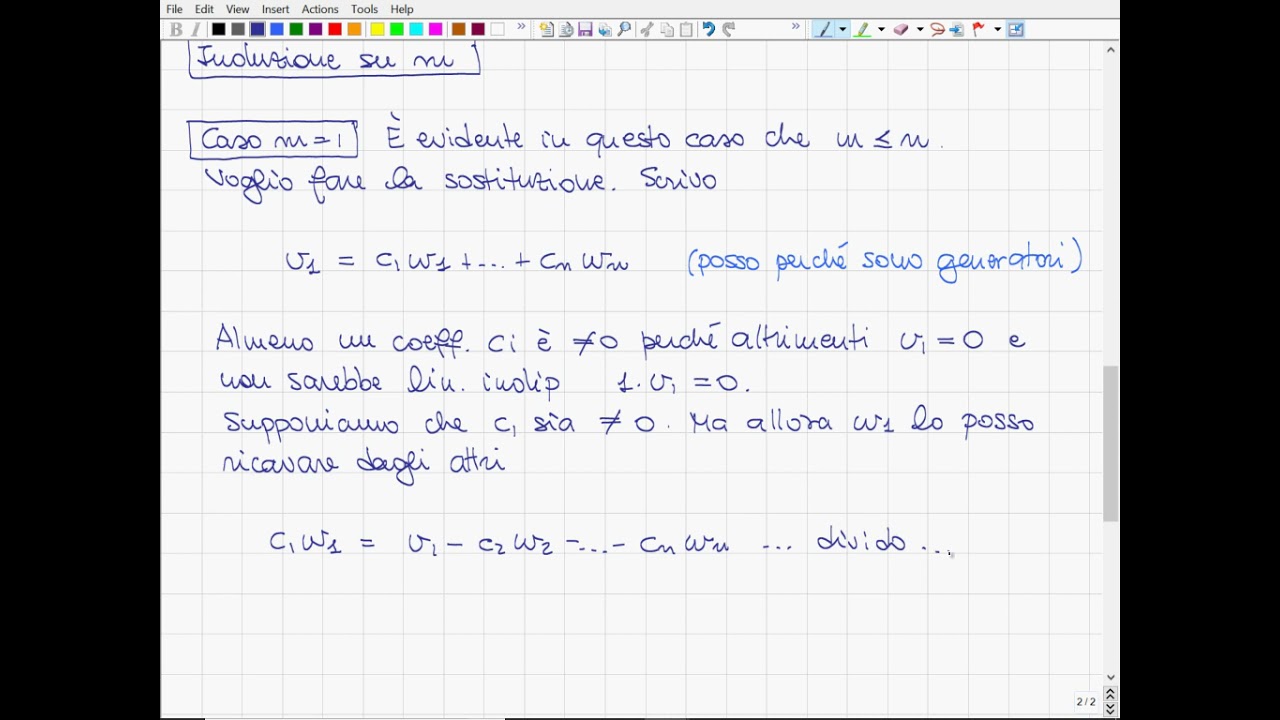 File Edit View Insert Actions Tools Help
B I
Induzione su m
Caso m=1 È evidente in questo caso che m ≤ n.
Voglio fare la sostituzione. Scrivo
v1 = c1w1 + ... + cnwn (posso perché sono generatori)
Almeno un coeff. ci è ≠0 perché altrimenti v1=0 e
non sarebbe lin. indip 1·v1=0.
Supponiamo che c1 sia ≠ 0. Ma allora w1 lo posso
ricavare dagli altri
c1w1 = v1 - c2w2 - ... - cnwn ... divido ...
2/2